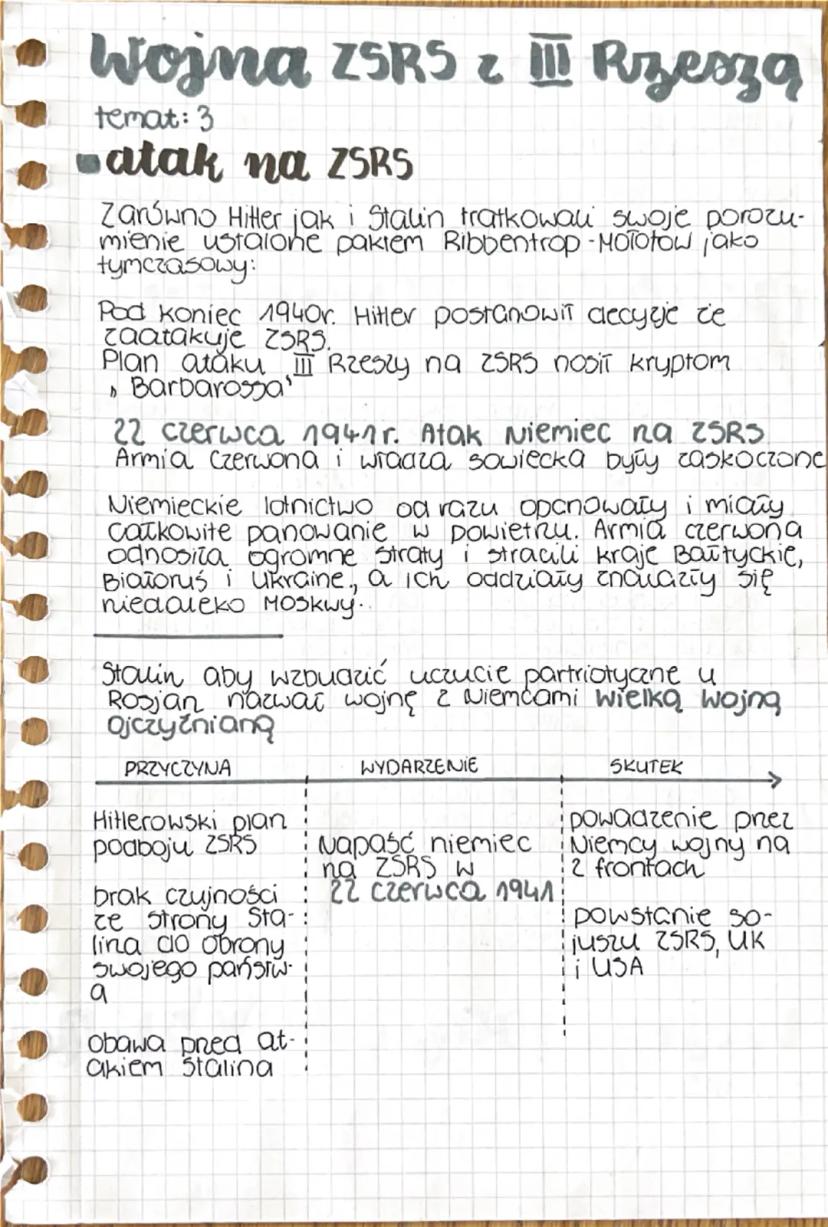 Wojna ZSRS z III Rzeszą
temat: 3
atak na ZSRS
Zarówno Hitler jak i Stalin tratkowali swoje porozu-
mienie ustalone paktem Ribbentrop-Mołotow jako
tymczasowy:
Pod koniec 1940r. Hitler postanowił decyzje że
zaatakuje ZSRS.
Plan ataku III Rzeszy na ZSRS nosił kryptom
„Barbarossa"
22 czerwca 1941r. Atak Niemiec na ZSRS
Armia Czerwona i władza sowiecka były zaskoczone
Niemieckie lotnictwo od razu opanowały i miały
całkowite panowanie w powietrzu. Armia czerwona
odnosiła ogromne straty i stracili kraje Bałtyckie,
Białoruś i Ukraine, a ich oddziały znalazły się
niedaleko Moskwy.
Stalin aby wzbudzić uczucie partriotyczne u
Rosjan nazwał wojnę z Niemcami wielką wojną
ojczyźnianą
PRZYCZYNA WYDARZENIE SKUTEK
Hitlerowski plan
podboju ZSRS
brak czujności
ze strony Sta-
lina do obrony
swojego państw-
a
obawa przed at-
akiem Stalina
Napaść niemiec
na ZSRS w
22 czerwca 1941
powadzenie przez
Niemcy wojny na
2 frontach
powstanie so-
juszu ZSRS, UK
i USA